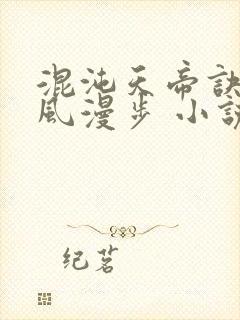 混沌天帝訣
風漫步 小説
纪茗